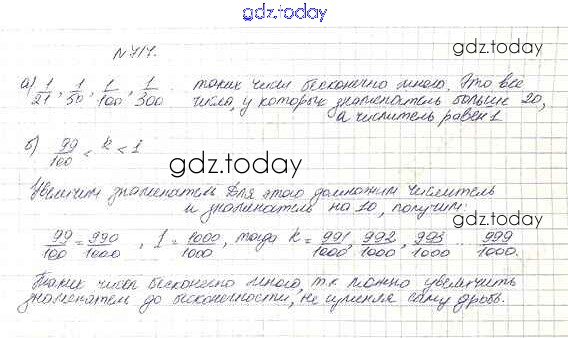 gdz.today
№717.
gdz.today
а) 1/21, 1/50, 1/100, 1/300. таких чисел бесконечно много. Это все
числа, у которых знаменатель больше 20,
а числитель равен 1
б) 99/100 < k < 1
gdz.today
Увеличим знаменатель. Для этого домножим числитель
и знаменатель на 10, получим:
99/100 = 990/1000, 1 = 1000/1000, тогда k = 991/1000, 992/1000, 993/1000 ... 999/1000.
Таких чисел бесконечно много, т.к можно увеличить
знаменатель до бесконечности, не изменяя саму дробь.
gdz.today